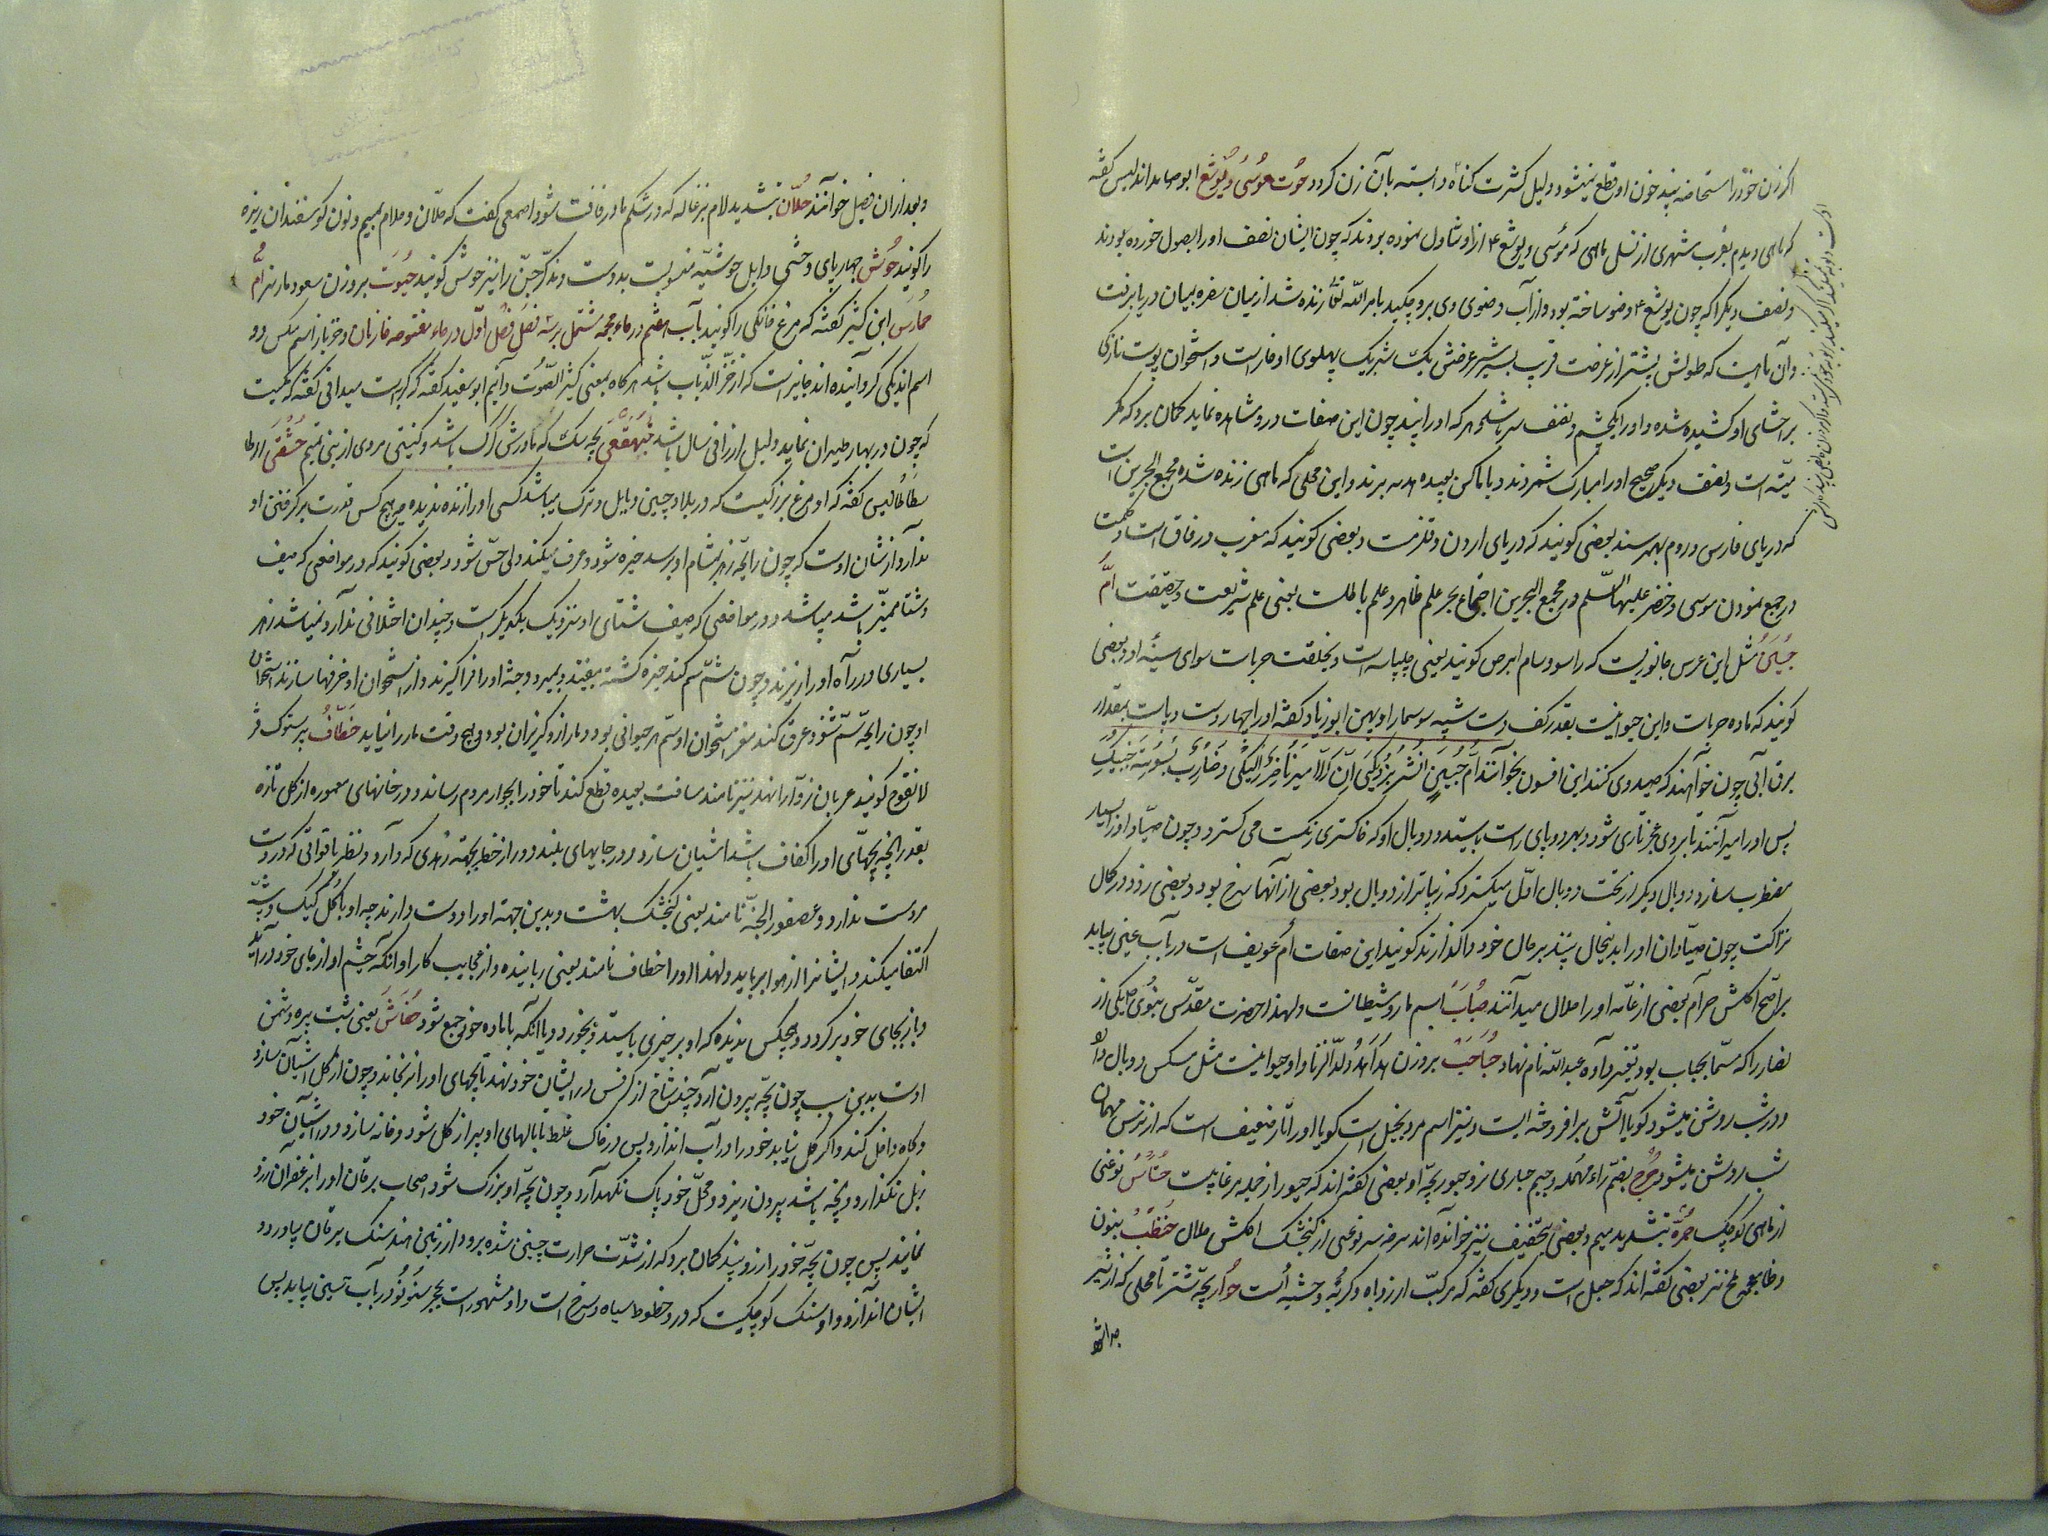 اکر زن خود را استحاضه بیند خون او قطع نمیشود دلیل کثرت کناه دانسته بآن زن کردد حوت موسی و یوشع ابو حامد اندلسی کفته
که ماهی دیدم بقرب شهری از نسل ماهی که موسی و یوشع ع از او تناول نموده بودند که چون ایشان نصف او را بصول خورده بودند
و نصف دیکر را که چون یوشع ع وضو ساخته بود و از آب وضوی وی برو چکید بامر الله تعالی زنده شد از میان سفره بمیان دریا برفت
و آن ماهیست که طولش بیشتر از عرضست قریب بشبر عرضش یک شبر یک پهلوی او خار است و استخوان پوست نازکی
بر احشای او کشیده شده و او را یکچشم و نصف سر باشد هر که او را بیند چون این صفات درو مشاهده نماید کمان برد که مکر
میته است و نصف دیکر صحیح او را مبارک شمردند و باماکن بعیده هدیه برند و این محلی که ماهی زنده شده مجمع البحرین است
که دریای فارس و روم بهم رسند بعضی کویند که دریای اردن و قلزمست و بعضی کویند که مغرب و زقاق است و حکمت
در جمع نمودن موسی و خضر علیهما السلام در مجمع البحرین اجتماع بحر علم ظاهر و علم باطنست یعنی علم شریعت و حقیقت ام
حبین مثل ابن عرس جانوریست که راسو و سام ابرص کویند یعنی چلپاسه است و بخلقت حرباست سوای سینه او و بعضی
کویند که ماده حرباست و این حیوانیست بقدر کف دست شبیه سوسمار و بهمن ابو زیاد کفته او را چهار دست و پاست بمقدار
برق آبی چون خواهند که صید وی کنند این افسون بخوانند ام حبین انشر بردیک ان الامیر ناظر الیک و ضارب بسوطه جنبیک
پس او را میرانند تا بروی عجز طاری شود و بهر دو پای راست بایستد و دو بال او که خاکستری رنکست می کسترد و چون صیاد او را بسیار
مضطرب سازد دو بال دیکر از تحت دو بال اول میکسترد که زیباتر از دو بال بود بعضی از آنها سرخ بود و بعضی زرد در کمال
نزاکت چون صیادان او را بدینحال بینند بر حال خود واکذارند کویند این صفات ام عویف است در آب عین بیاید
بر اصح اکلش حرام بعضی از عامه او را حلال میدانند حباب اسم مار و شیطانست و لهذا حضرت مقدس نبوی یکی از
نصار را که مسما بحباب بود تغیر داده عبدالله نام نهاد حباحب بروزن هداهد ولد الزنا و او حیوانیست مثل مکس دو بال دارد
و در شب روشن میشود کویا آتش بر افروخته ایست و نیز اسم مرد بخیل است کویا او را نار ضعیف است که از ترس مهمان
شب روشن میشود برج بضم راء مهمله و جیم حباری نر و حبور بچه او بعضی کفته اند که حبور از جمله مرغابیست حساس نوعی
از ماهی کوچک حمره بتشدید میم و بعضی بتخفیف نیز خوانده اند سرخه سر نوعی از کنجشک اکلش حلال حنظب بنون
و ظاء معجمه ملخ نر بعضی کفته اند که جعل است و دیکری کفته که مرکب از روباه و کربه وحشیه است حوار بچه شتر تا محلی که از شیر
جدا شود
و بعد از آن فصیل خوانند حلان بتشدید لام بزغاله که در شکم مادر یافت شود اصمعی کفت که حلان و حلام بمیم و نون کوسفندان ریزه
را کویند حوش چهارپای وحشی و ابل حوشیه منسوبست بدوست و مذکر جن را نیز حوش کویند حیوت بروزن سعود مار نر ام
حمارس ابن کثیر کفته که مرغ خانکی را کویند باب هفتم در خاء معجمه مشتمل بر سه فصل فصل اول در خاء مفتوحه خازبان و خازباز اسم مکس دو
اسم اند یکی کردانیده اند جایز است که از خر الذباب باشد هر کاه بمعنی کثیر الصوت دانیم ابو سعید کفته که کربه است میدانی کفته که کمیت
که چون در بهار طیران نماید دلیل ارزانی سال باشد خیهفعی بچه سک که مادرش کرک باشد و کنیتی مردی از بنی تمیم خشقق ارسطا
طالیس کفته که او مرغ بزرکیست که در بلاد چین و بابل و ترک میباشد کسی او را زنده ندیده و هیچ کس قدرت بر کرفتن او
ندارد از شان اوست که چون رایحه زهر بمشام او برسد خیره شود و عرق میکند و بی حس شود و بعضی کویند که در مواضعی که صیف
و شتا ممیز باشد میباشد و در مواضعی که صیف و شتای او نزدیک بیکدیکرست و چندان اختلافی ندارد نمیباشد زهر
بسیاری در راه او را زیزند و چون شم سم کند خیره کشته بیفتد و بمیرد و جثه او را فرا کیرند و از استخوان او ظرفها سازند استخوان
او چون رایحه سم شنود عرق کند مغز استخوان او سم هر حیوانی بود و مار ازو کریزان بود و هیچ وقت مار را نیابد خطاف پرستوک
لا تقوم کویند عربان زوار الهند نیز نامند مسافت بعیده قطع کند تا خود را بجوار مردم رساند و در خانهای معموره از کل تازه
بقدر آنچه بچهای او را کفاف باشد آشیان سازد و در جایهای بلند و دور از خطر بجهته زهدی که دارد و نظر باقواتی که در دست
مردست ندارد و عصفور الجنه نامند یعنی کنجشک بهشت و بدین جهة او را دوست دارند چه او باکل کیک و پشه
اکتفا میکند و ایشانرا از هوا برباید و لهذا او را خطاف نامند یعنی رباینده و از عجایب کار او آنکه چشم او از جای خود در آید
و باز بجای خود برکردد و هیچکس ندیده که او بر چیزی بایستد و بخورد و یا آنکه با ماده خود جمع شود خفاش یعنی شب پره دشمن
اوست بدین سبب چون بچه بیرون آرد چند شاخ از کرفس در آشیان خود نهد تا بچهای او را نرنجاند و چون از کل آشیان سازد
و کاه داخل کند و اکر کل نیابد خود را در آب اندازد پس در خاک غلط تا بالهای او پر از کل شود و خانه سازد و در آشیان خود
زبل نکذارد و چه باشد بیرون ریزد و محل خود پاک نکهدارد و چون بچه او بزرک شود اصحاب یرقان او را بزعفران زرد
نمایند پس چون بچه خود را زرد بیند کمان برد که از شدت حرارت چنین شده برود از زمین هند سنک یرقان بیاورد و
ایشان اندازد و او سنک کوچکیست که درو خطوط سیاه و سرخ است و او مشهور است بحجر سنونو در باب سین بیاید پس